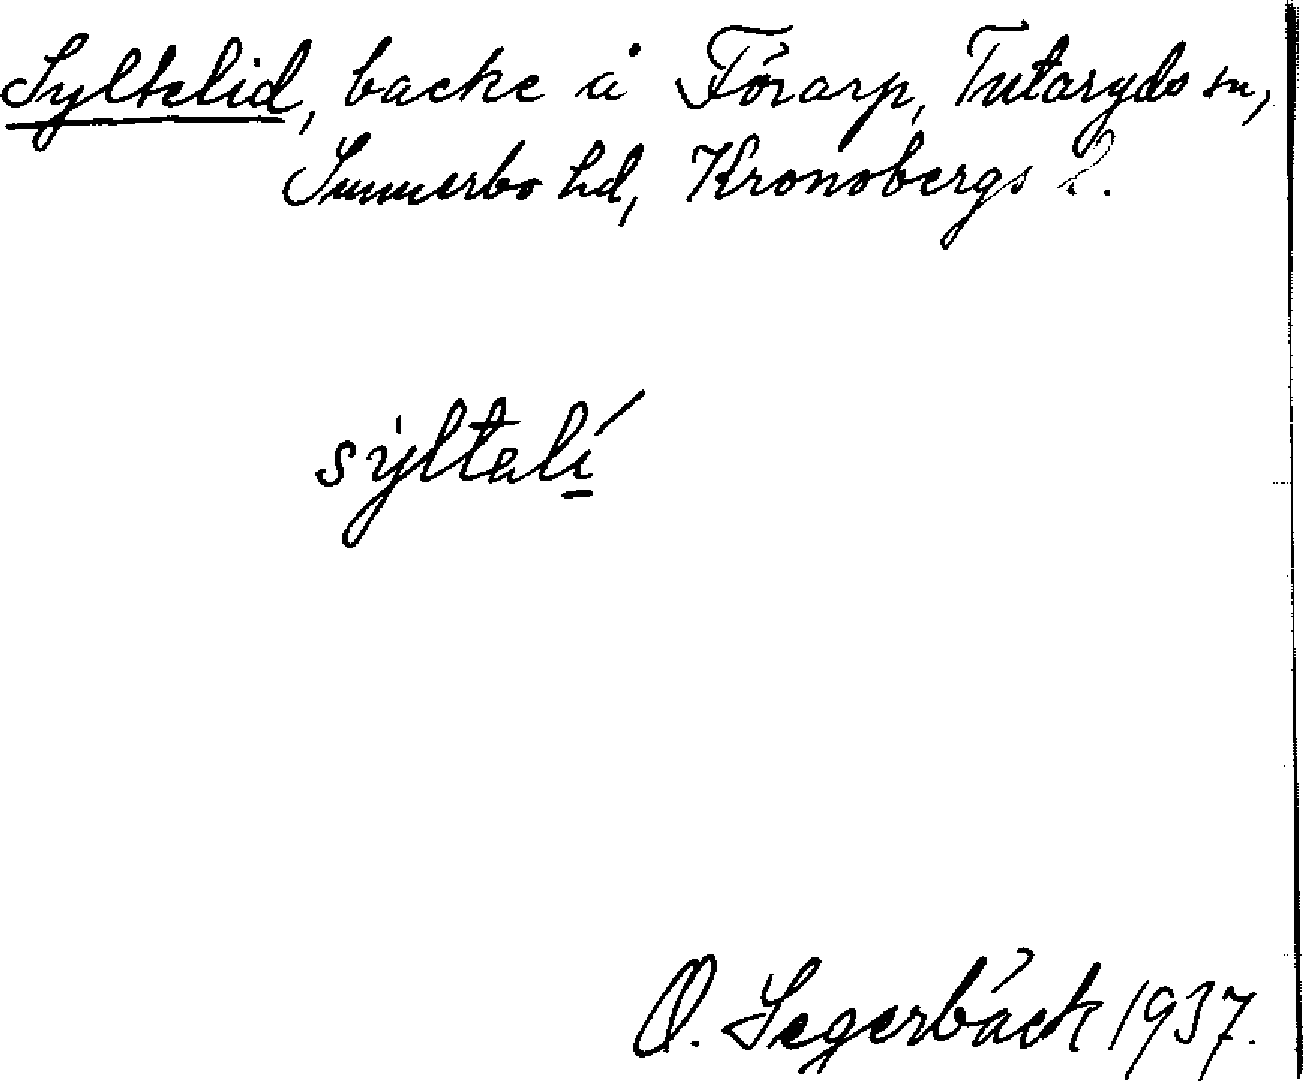 Syltelid, backe å Törarp, Tutaryds sn,
Sunnerbo hd, Kronobergs l.
sýltalí
O. Segerbäck 1937.